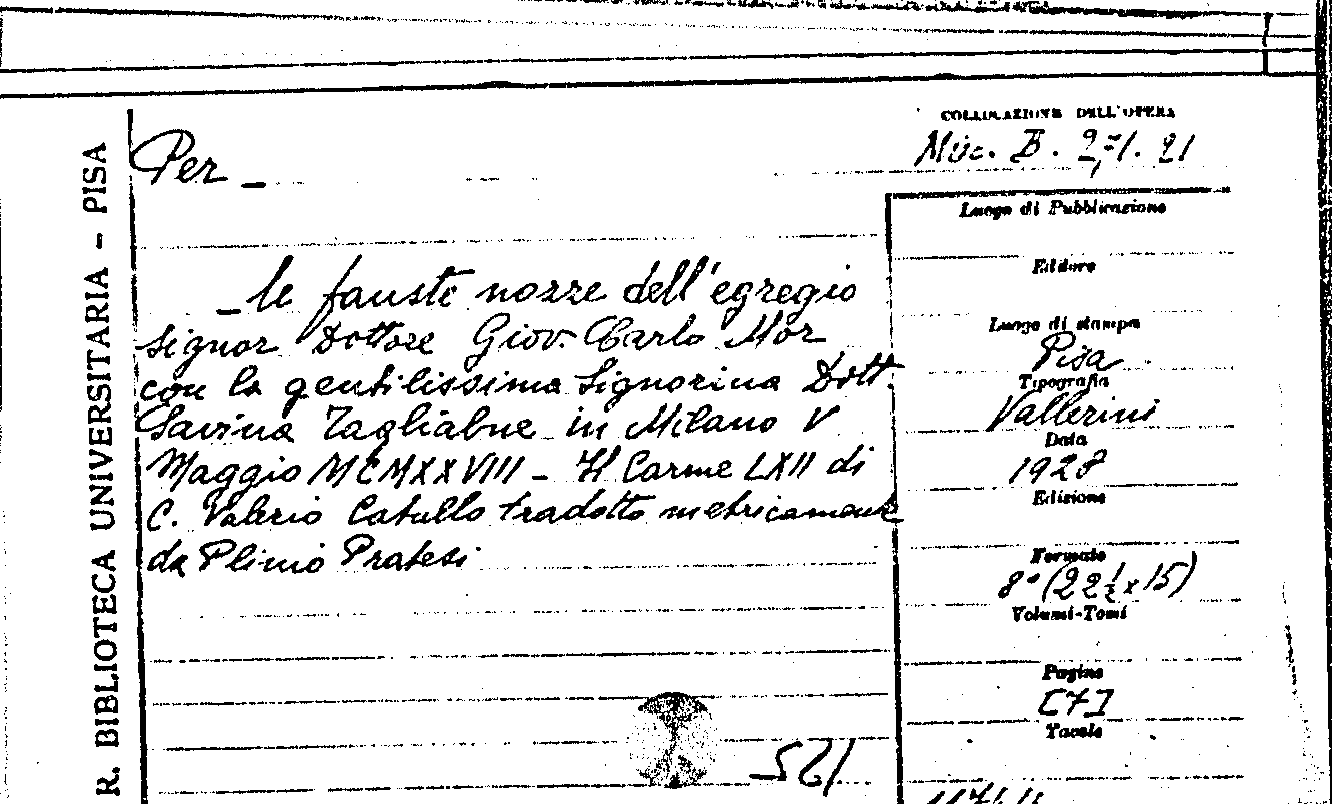 R. BIBLIOTECA UNIVERSITARIA - PISA
Per _
_ le fauste nozze dell'egregio
signor Dottore Giov. Carlo Mor
con la gentilissima Signorina Dott.
Savina Tagliabue in Milano V
Maggio MCMXXVIII - Il Carme LXII di
C. Valerio Catullo tradotto metricamente
da Plinio Pratesi
COLLOCAZIONE DELL'OPERA
Misc. B. 271. 21
Luogo di Pubblicazione
Editore
Luogo di stampa
Pisa
Tipografia
Vallerini
Data
1928
Edizione
Formato
8° (22½ x 15)
Volumi-Tomi
Pagine
[7]
Tavole